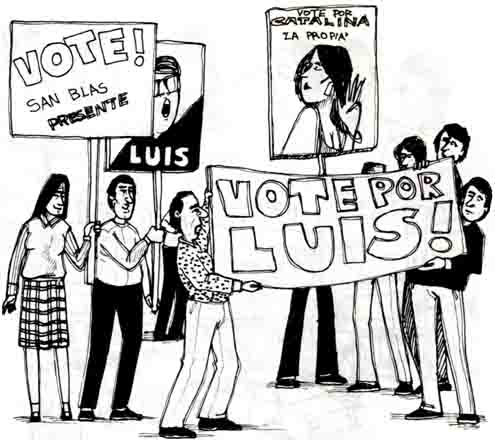 VOTE!
SAN BLAS
PRESENTE
LUIS
VOTE POR
CATALINA
LA PROPIA'
VOTE POR
LUIS!